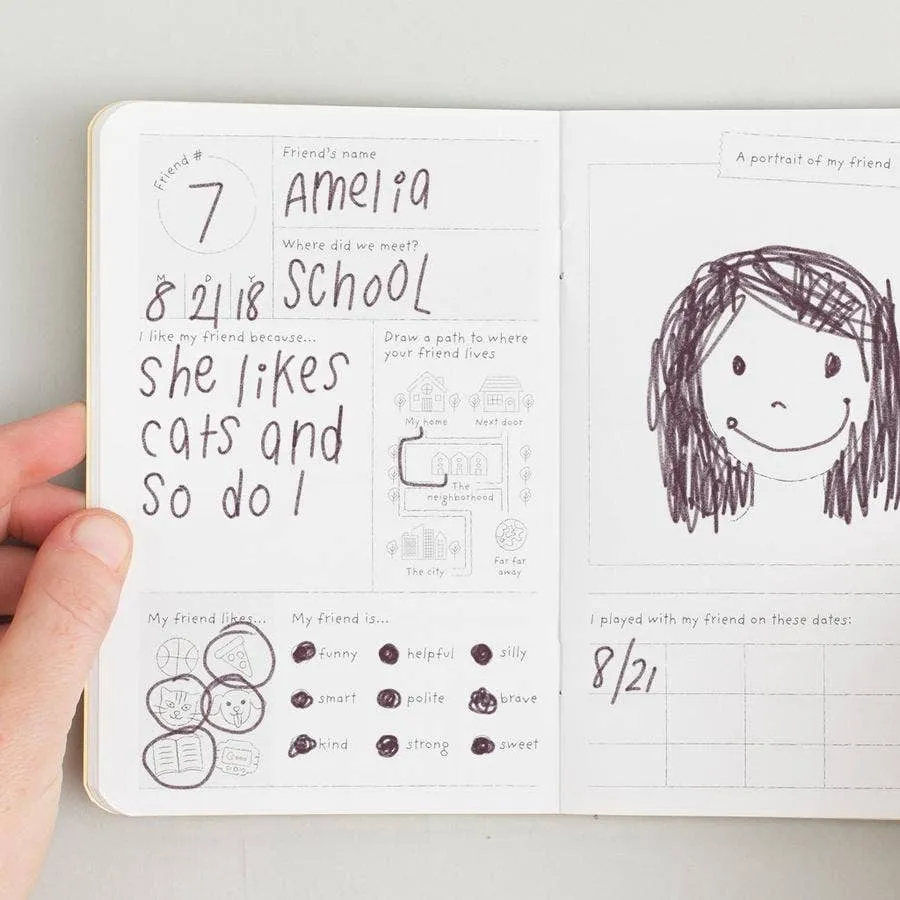 Friend #
7
Friend's name
Amelia
Where did we meet?
SCHOOL
M D Y
8 21 18
I like my friend because...
she likes
cats and
so do I
Draw a path to where
your friend lives
My home
Next door
The
neighborhood
The city
Far far
away
My friend likes...
My friend is...
funny helpful silly
smart polite brave
kind strong sweet
A portrait of my friend
I played with my friend on these dates:
8/21